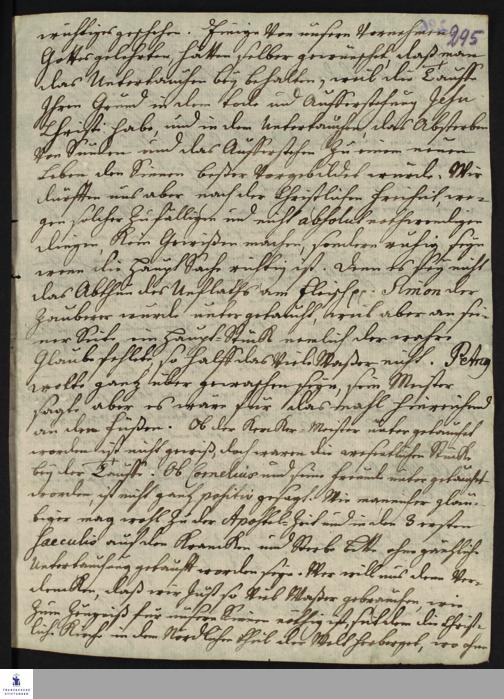 295
wichtiges geschehen. Einige von unsern Vornehmen
Gottesgelehrten hätten selber gewünschet, daß man
das Untertauchen bey behalten, weil die Tauffe
Ihren Grund in dem Tode und Aufferstehung Jesu
Christi habe, und in dem Untertauchen das Absterben
von Sünden und das Aufferstehen zu einem neuen
Leben den Sinnen beßer vorgebildet würde. Wir
dürfften uns aber nach der Christlichen Freyheit, we-
gen solcher zufälligen und nicht absolut nothwendigen
dingen kein Gewißen machen, sondern ruhig seyn
wenn die Haupt Sache richtig ist. Denn es sey nicht
das Abthun des Unflaths am Fleisch pp. Simon der
Zauberer wurde untergetaucht, weil aber an sei-
ner Seite im Haupt-Stück nemlich der wahre
Glaube fehlete, so halff das viele Waßer nicht. Petrus
wolte gantz über gewaschen seyn, sein Meister
sagte aber es wäre für das mahl hinreichend
an den Füßen. Ob der Kercker-Meister untergetaucht
worden ist nicht gewiß, doch waren die wesentlichen Stücke
bey der Tauffe. Ob Cornelius und seine Freunde untergetaucht
worden, ist nicht gantz positiv gesagt. Wie mancher gläu-
biger mag wohl zu der Apostel-Zeit und in den 3 ersten
Saeculis auf dem Krancken und Sterbe Bette ohne gäntzliche
Untertauchung getaufft worden seyn. Wer will uns denn ver-
dencken, daß wir just so viel Waßer gebrauchen, wie
zum Zeugniß für unsere Sinnen nöthig ist, seitdem die Christ-
liche Kirche in dem Nordlichen Theil der Welt herberget, wo ohne
FRANCKESCHE
STIFTUNGEN